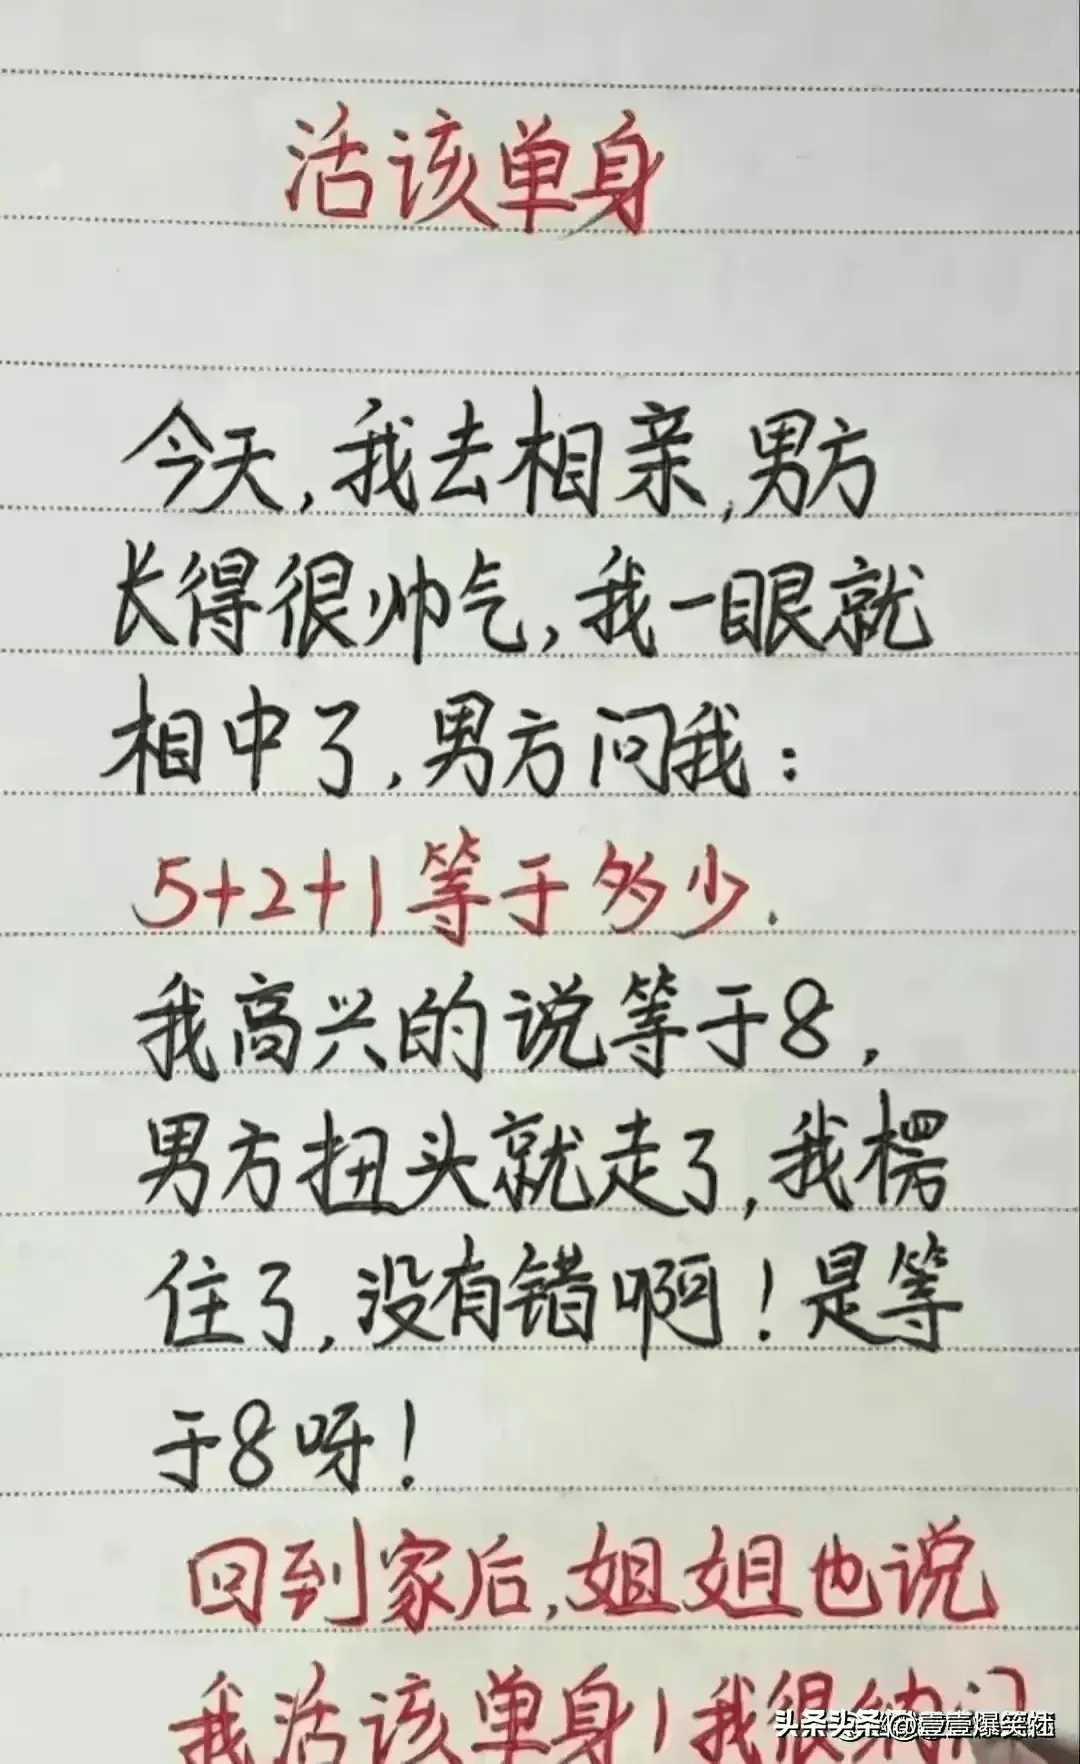 活该单身
今天,我去相亲,男方
长得很帅气,我一眼就
相中了,男方问我:
5+2+1等于多少.
我高兴的说等于8,
男方扭头就走了,我楞
住了,没有错啊!是等
于8呀!
回到家后,姐姐也说
我活该单身!我很纳闷
头条@壹壹爆笑社